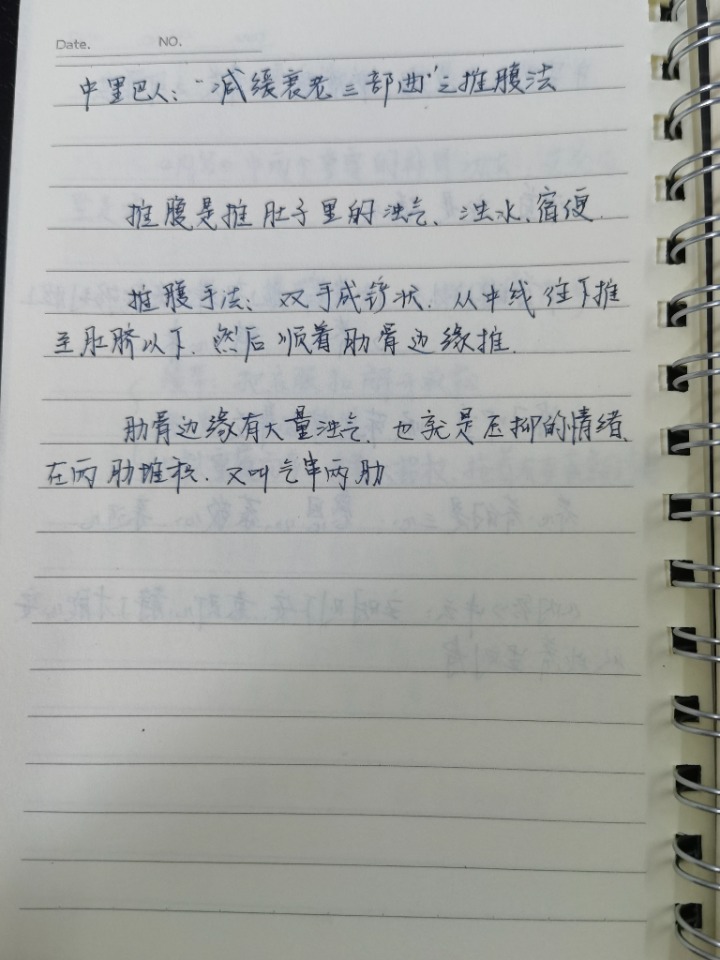 Date. NO.
中里巴人："减缓衰老三部曲"之推腹法
推腹是推肚子里的浊气、浊水、宿便.
推腹手法：双手成锛状.从中线往下推
至肚脐以下.然后顺着肋骨边缘推.
肋骨边缘有大量浊气.也就是压抑的情绪.
在两肋堆积.又叫气串两肋